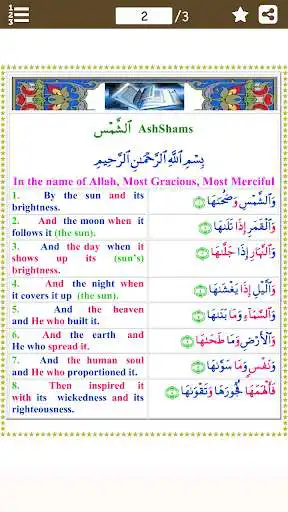 1
2
3
2 /3
اَلشَّمْس AshShams
بِسْمِ اللَّهِ الرَّحْمَٰنِ الرَّحِيمِ
In the name of Allah, Most Gracious, Most Merciful
1. By the sun and its
brightness.
وَالشَّمْسِ وَضُحَىٰهَا ۝١
2. And the moon when it
follows it (the sun).
وَالْقَمَرِ إِذَا تَلَىٰهَا ۝٢
3. And the day when it
shows up its (sun's)
brightness.
وَالنَّهَارِ إِذَا جَلَّىٰهَا ۝٣
4. And the night when
it covers it up (the sun).
وَالَّيْلِ إِذَا يَغْشَىٰهَا ۝٤
5. And the heaven
and He who built it.
وَالسَّمَآءِ وَمَا بَنَىٰهَا ۝٥
6. And the earth and
He who spread it.
وَالْأَرْضِ وَمَا طَحَىٰهَا ۝٦
7. And the human soul
and He who proportioned it.
وَنَفْسٍ وَمَا سَوَّىٰهَا ۝٧
8. Then inspired it
with its wickedness and its
righteousness.
فَأَلْهَمَهَا فُجُورَهَا وَتَقْوَىٰهَا ۝٨